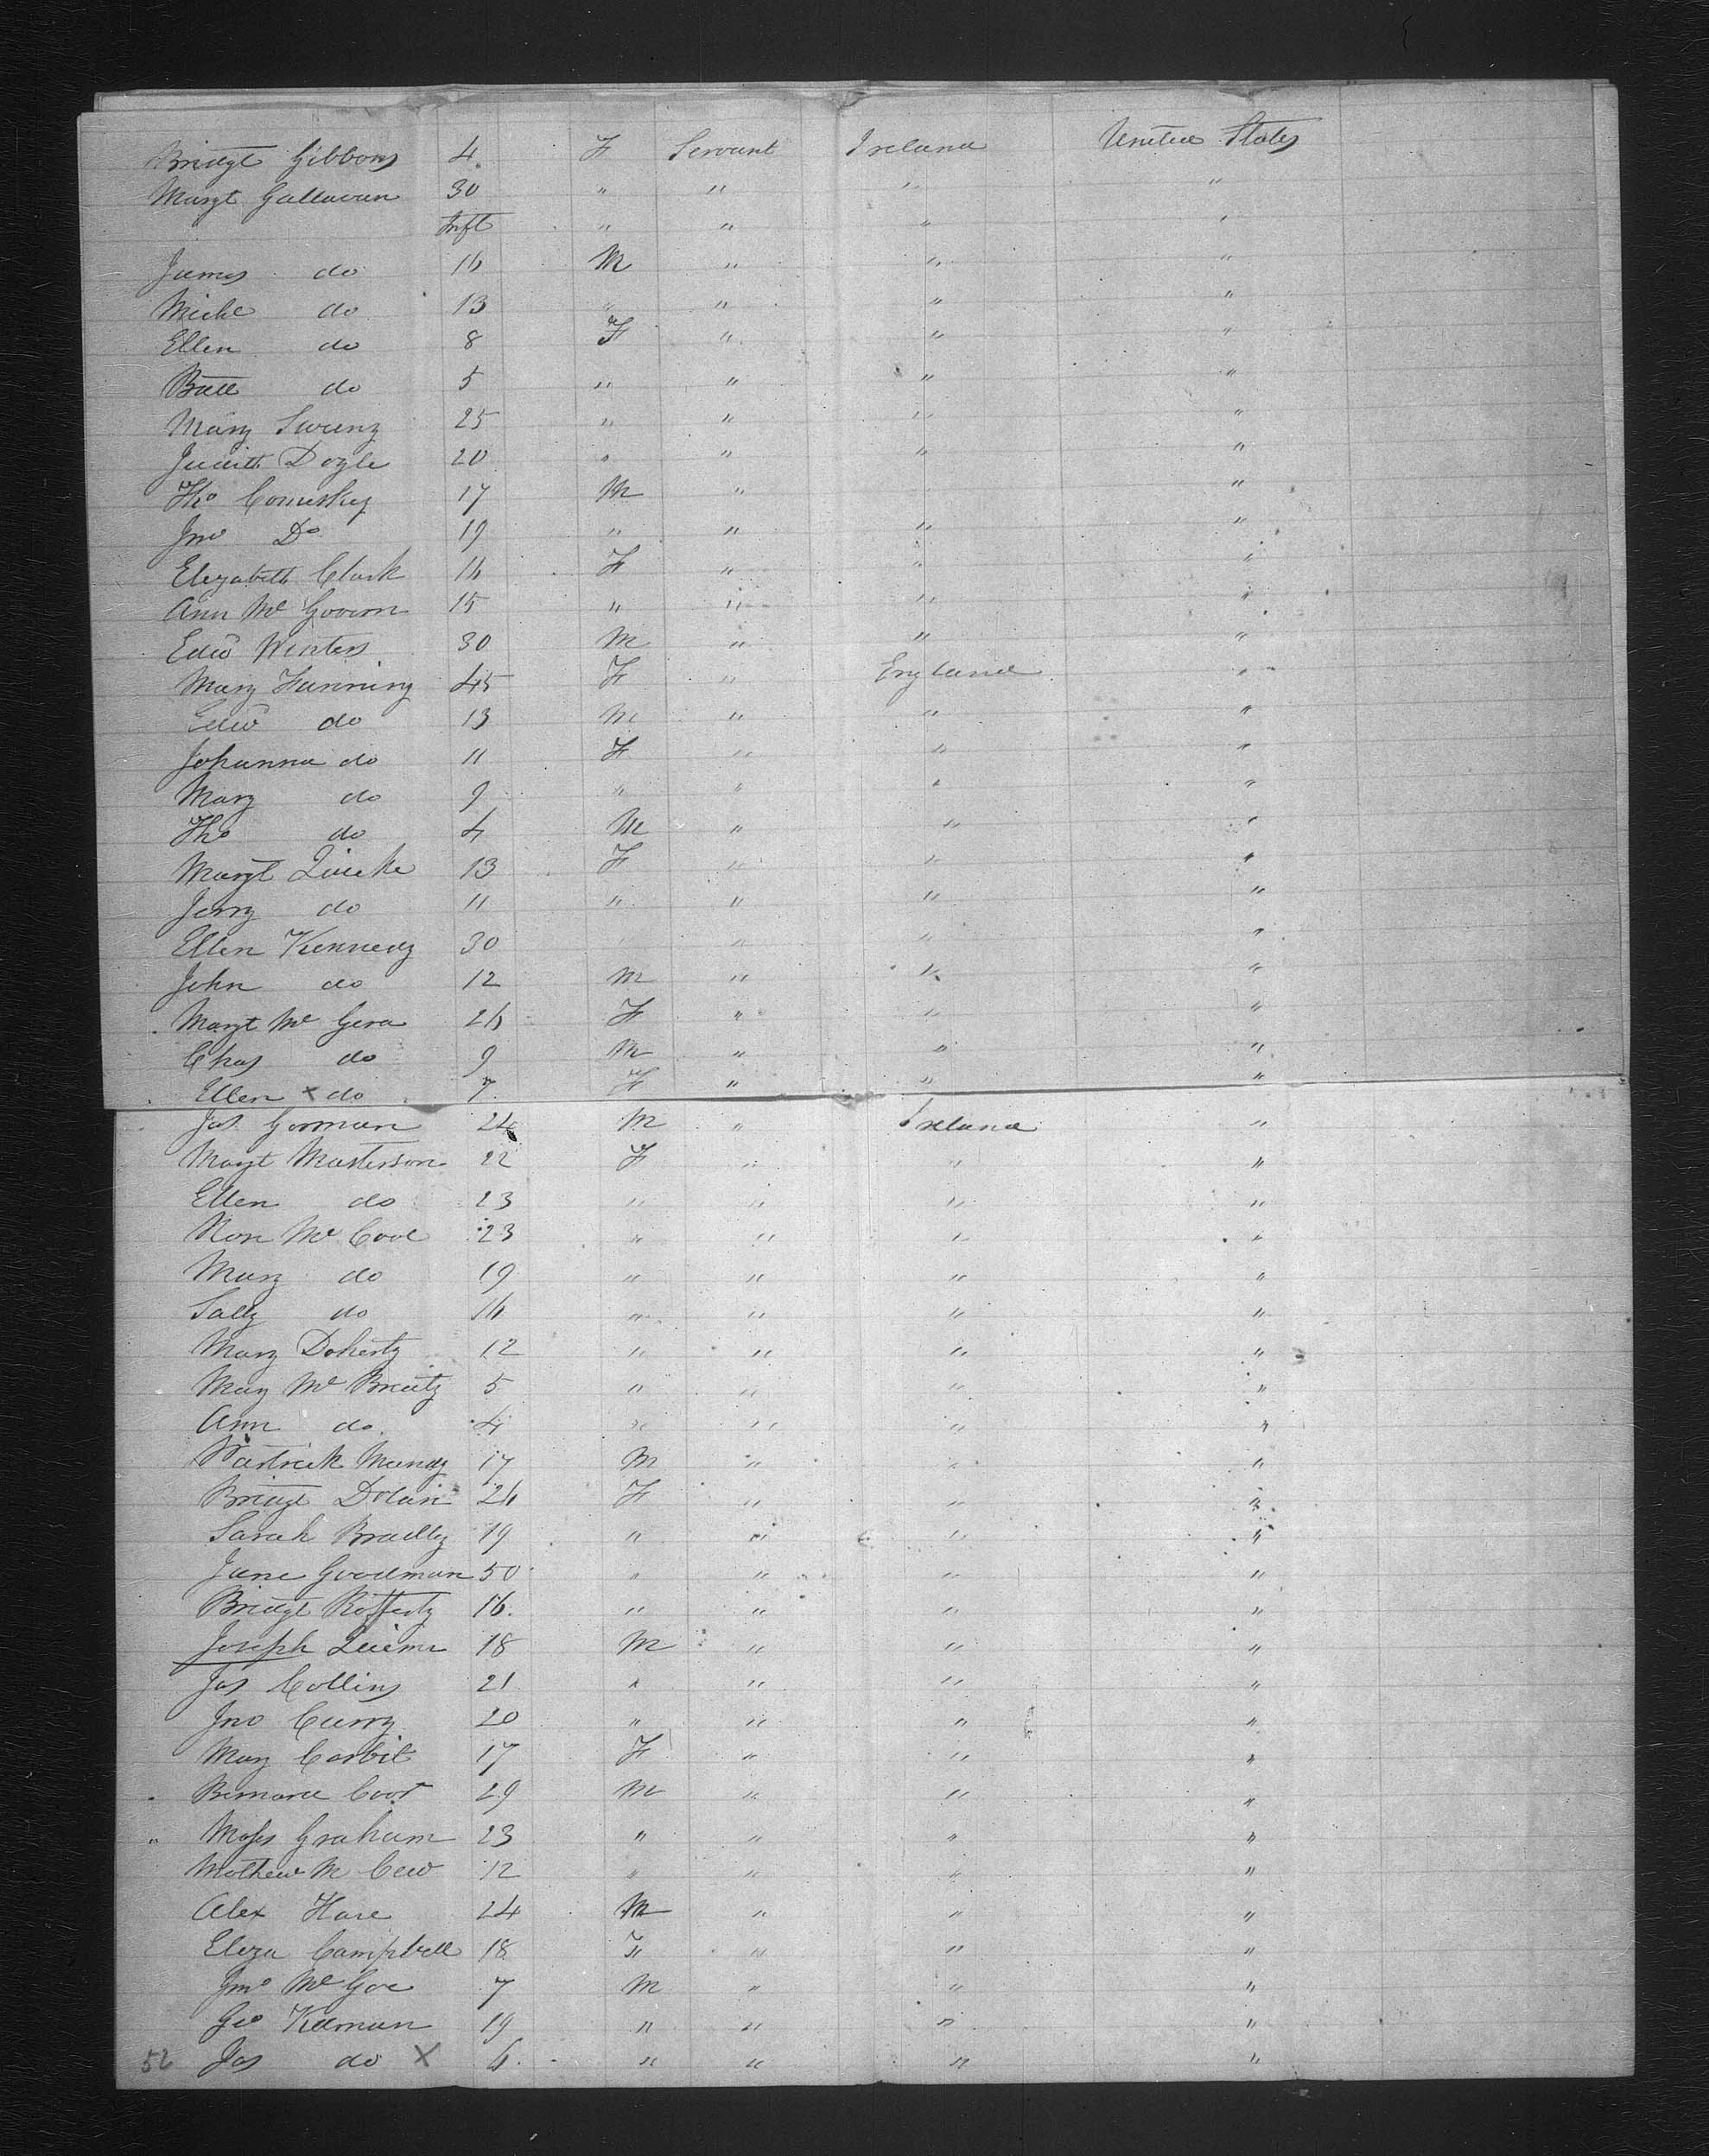 Bridgt Gibbons 4 F Servant Ireland United States
Margt Gallavan 30 " " " "
Inft " " " "
James do 16 M " " "
Michl do 13 " " " "
Ellen do 8 F " " "
do 5 " " " "
Mary Sweeny 25 " " " "
Judith Doyle 20 " " " "
Tho Comiskey 17 M " "
Jno Do 19 " " " "
Elizabeth Clark 16 F " " "
Ann Mc Govern 15 " " " "
Edwd Winters 30 M " " "
Mary Fanning 45 F " England "
Edwd do 13 M " " "
Johanna do 11 F " " "
Mary do 9 " " " "
Tho do 4 M " " "
Margt Quirke 13 F " " "
Jerry do 11 " " " "
Ellen Kennedy 30 " " " "
John do 12 M " " "
Margt Mc Gera 26 F " " "
Chas do 9 M " " "
Ellen x do 7 F " " "
Jas Gorman 24 M " Ireland "
Margt Masterson 22 F " " "
Ellen do 23 " " " "
Non Mc Cool 23 " " " "
Mary do 19 " " " "
Sally do 16 " " " "
Mary Doherty 12 " " " "
Mary Mc 5 " " " "
Ann do 4 " " " "
Patrick Mundy 17 M " " "
Bridgt Dolan 26 F " " "
Sarah Bradley 19 " " " "
Jane Goodman 50 " " " "
Bridgt Rafferty 16 " " " "
Joseph 18 M " " "
Jas Collins 21 " " " "
Jno Curry 20 " " " "
Mary Corbit 17 F " " "
Bernard 29 M " " "
" Moses Graham 23 " " " "
Mathew M Cew 12 " " " "
Alex Hare 24 M " " "
Eliza Campbell 18 F " " "
Jno Mc Goe 7 M " " "
Geo Keernan 19 " " " "
52 Jas do X 6 " " " "